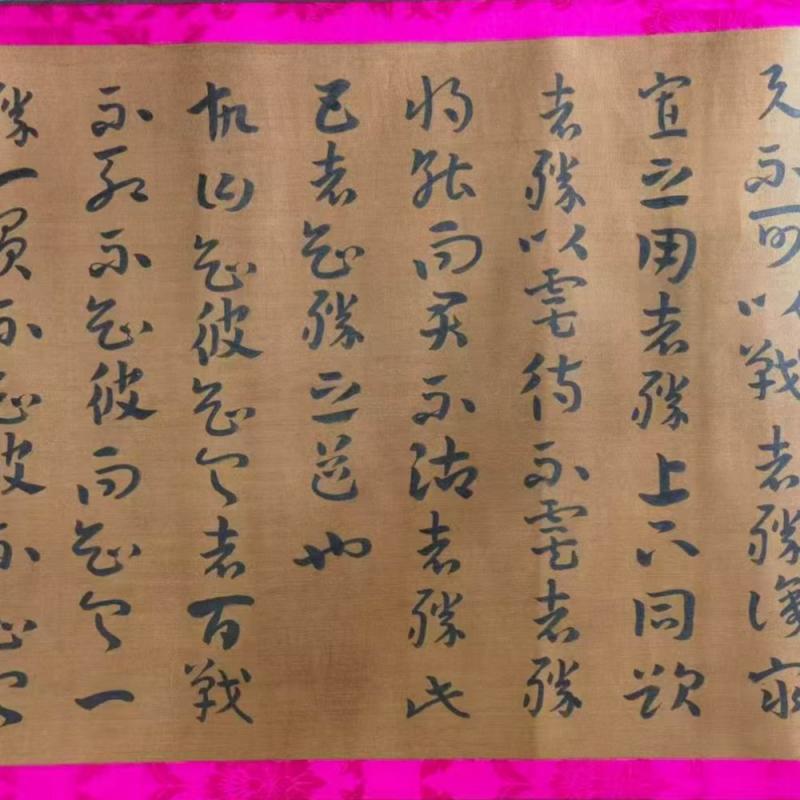 不可以戰者勝識衆
寡之用者勝上下同欲
者勝以虞待不虞者勝
將能而君不者勝此
五者知勝之道也
故曰知彼知己者百戰
不殆不知彼而知己一
勝一負不知彼不知己